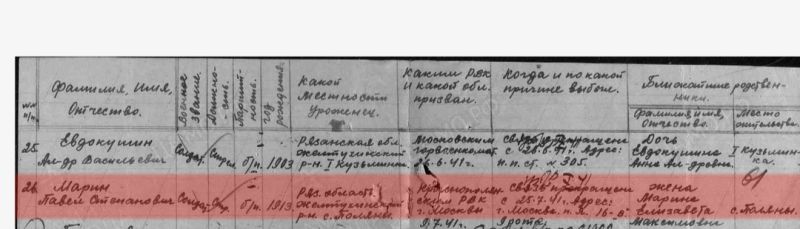 №№ п/п
Фамилия, Имя, Отчество.
Военное звание.
Должность.
Партийность.
год рождения.
Какой местности Уроженец.
Каким РВК и какой обл. призван.
Когда и по какой причине выбыл.
Ближайшие родственники.
Фамилия, имя, Отчество.
Место жительства.
25.
Евдокушин
Ал-др Васильевич
Солдат.
Стрел.
б/п.
1903
Рязанская обл.
Желтухинский
р-н. I Кузьминка
Московским
горвоенкоматом
26.6.41г.
Связь прекращена
с 26.6.41г. Адрес:
п.п. ст. № 305.
Дочь
Евдокушина
Анна Ал-дровна.
I Кузьминка.
26.
Марин
Павел Степанович
Солдат
Стр.
б/п.
1913
Ряз. область
Желтухинский
р-н. с. Поляны.
Краснополян
ским РВК
г. Москвы
9.7.41г.
Связь прекращена
с 25.7.41г. Адрес:
г. Москва. п.я. 16-в.
9 рота.
жена
Марина
Елизавета
Максимовна
с. Поляны.